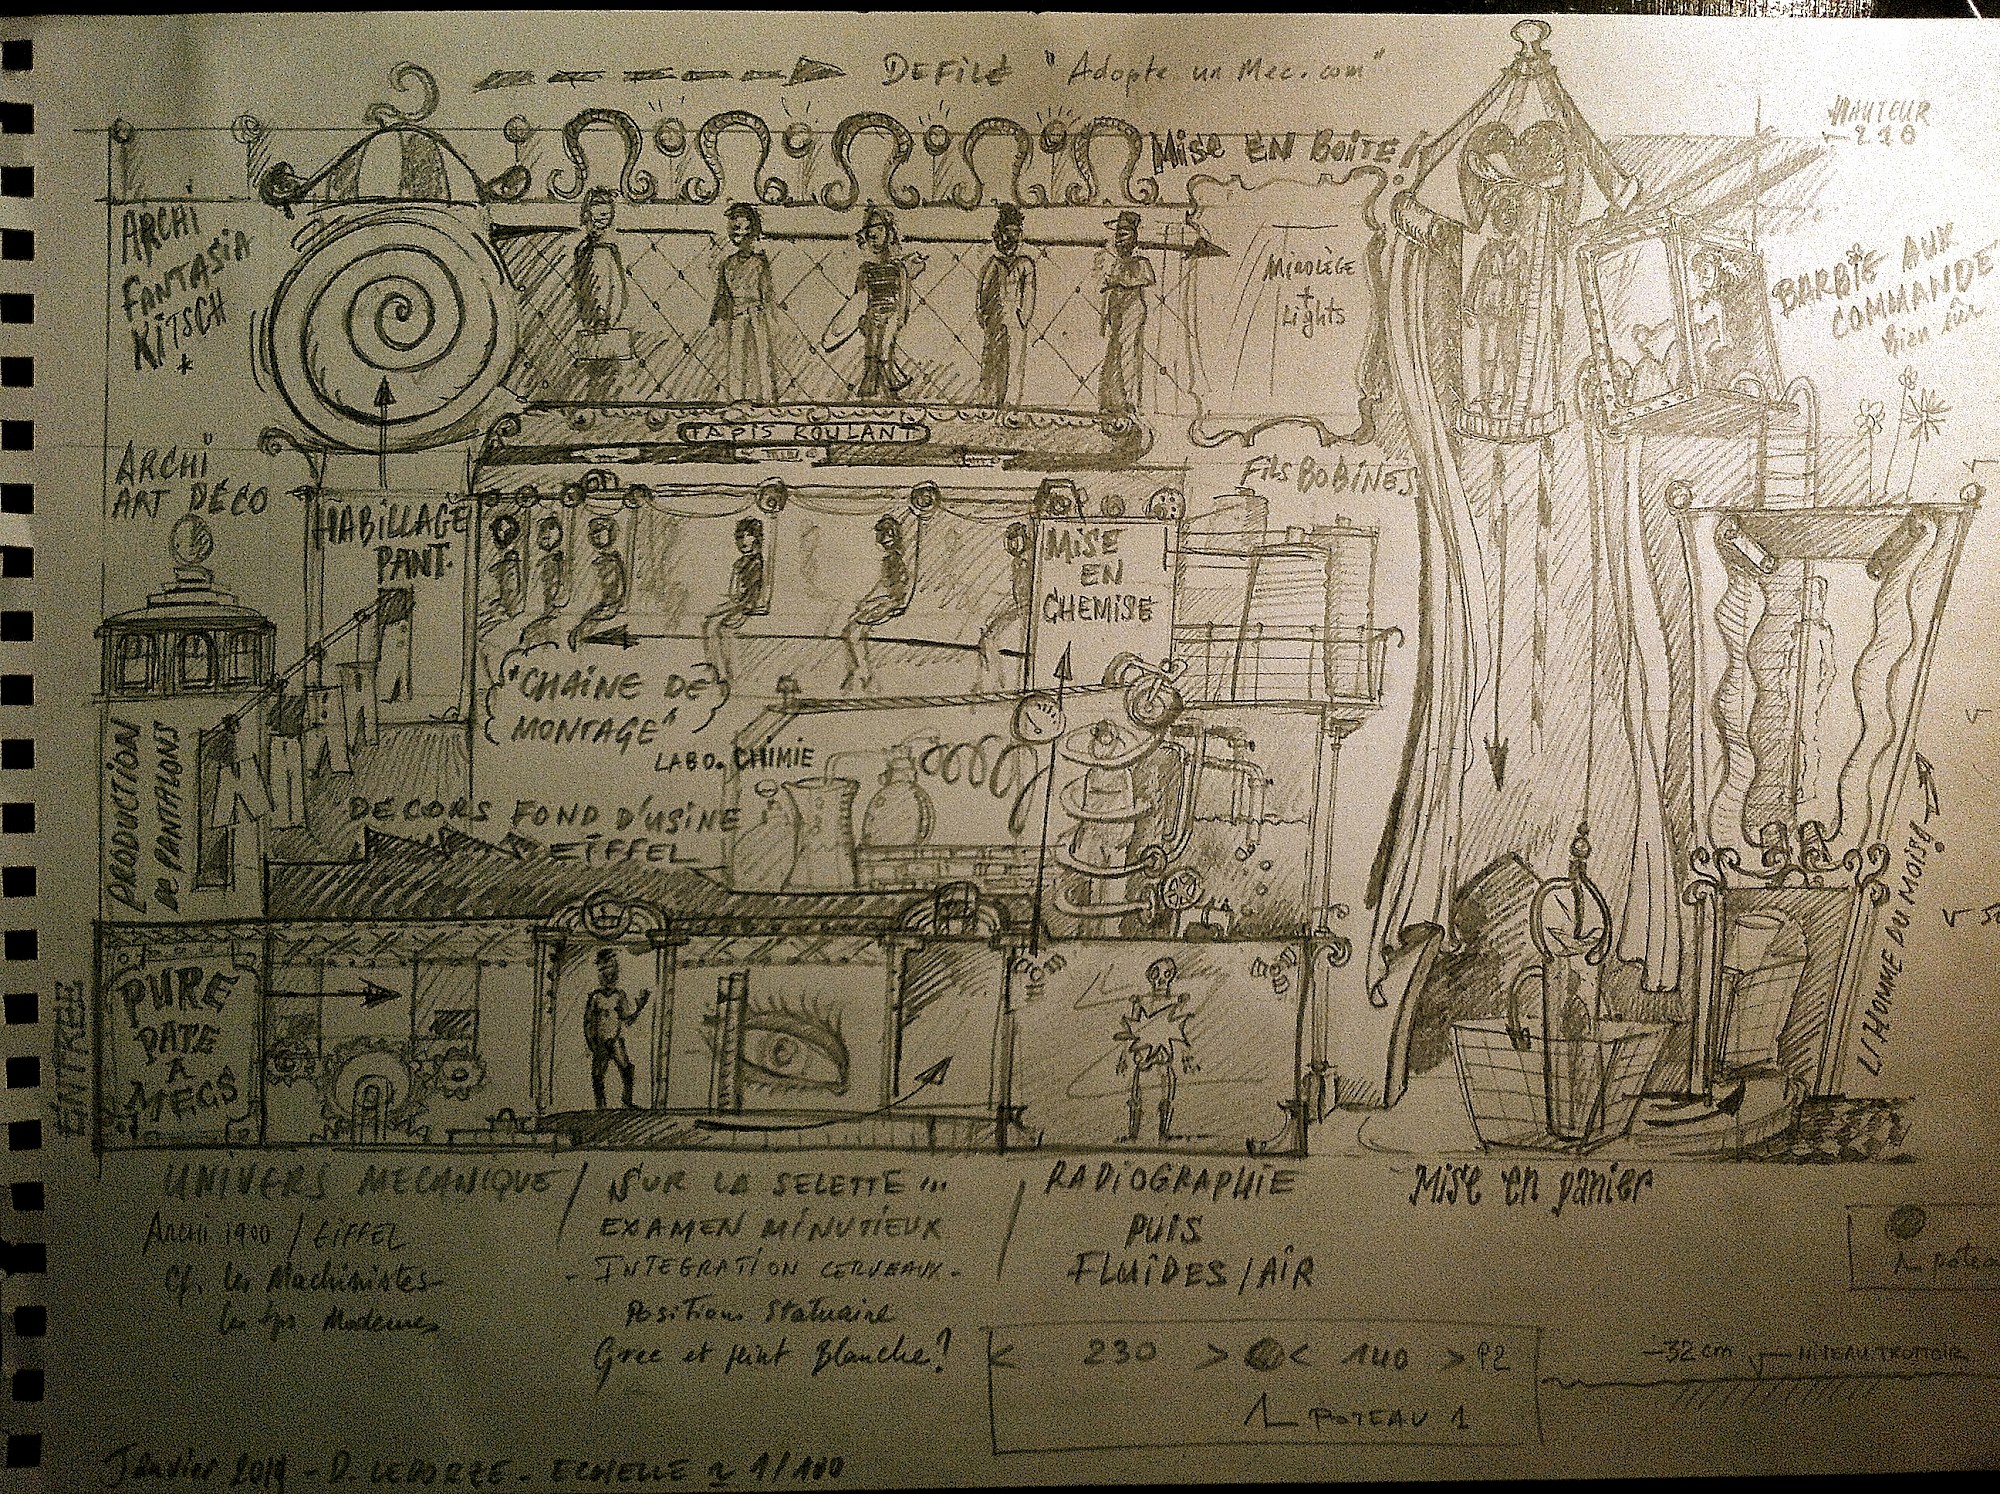 DEFILÉ "Adopte un Mec.com"
HAUTEUR
210
Mise EN BOITE !
ARCHI
FANTASIA
KITSCH
*
MIROLÈGE
+
Lights
BARBIE AUX
COMMANDE
Bien sûr
TAPIS ROULANT
ARCHI
ART DÉCO
FILS BOBINES
HABILLAGE
PANT.
MISE
EN
CHEMISE
"CHAÎNE DE
MONTAGE"
LABO. CHIMIE
PRODUCTION
De PANTALONS
DECORS FOND D'USINE
EIFFEL
L'HOMME DU MOIS!
ENTRÉE
PURE
PATE
A
MECS
UNIVERS MECANIQUE /
Archi 1900 / EIFFEL
Cf. les Machinistes
les tps Modernes
SUR LA SELETTE...
EXAMEN MINUTIEUX
- INTEGRATION CERVEAUX -
Positions Statuaire
Grec et peint Blanche?
/ RADIOGRAPHIE
PUIS
FLUIDES / AIR
Mise en panier
< 230 > < 140 > P2
POTEAU 1
-32 cm
NIVEAU TROTTOIR
Janvier - D. - ECHELLE ~ 1/100